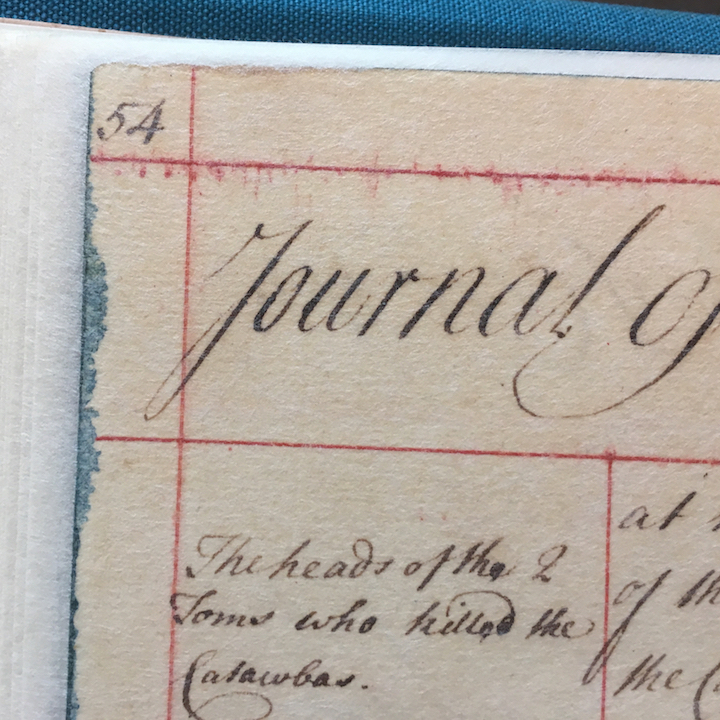 54
Journal of
The heads of the 2
Toms who killed the
Catawbas.
at
of th
the C